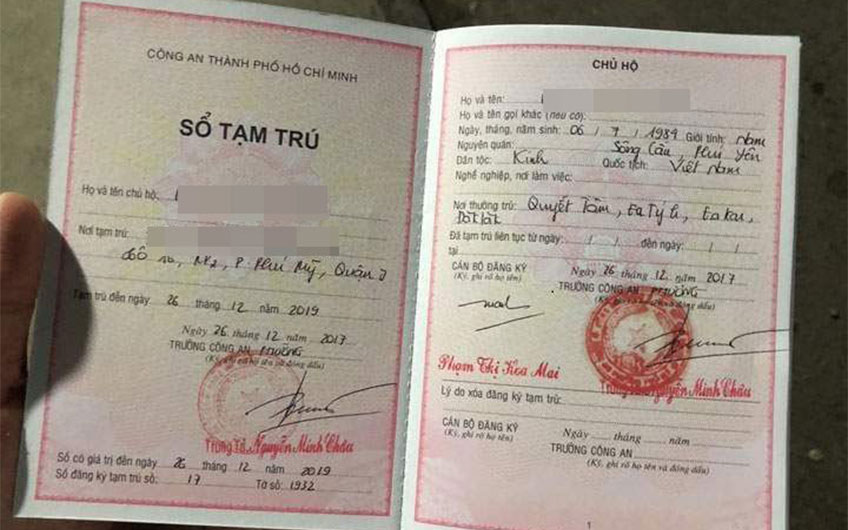 CÔNG AN THÀNH PHỐ HỒ CHÍ MINH
SỔ TẠM TRÚ
Họ và tên chủ hộ:
Nơi tạm trú:
P. Phú Mỹ, Quận 7
Tạm trú đến ngày 26 tháng 12 năm 2019
Ngày 26 tháng 12 năm 2017
TRƯỞNG CÔNG AN PHƯỜNG
(Ký, ghi rõ họ tên và đóng dấu)
Trung Tá Nguyễn Minh Châu
Sổ có giá trị đến ngày 26 tháng 12 năm 2019
Số đăng ký tạm trú số: 17 Tờ số: 1932
CHỦ HỘ
Họ và tên:
Họ và tên gọi khác (nếu có):
Ngày, tháng, năm sinh: 06 / 7 / 1984 Giới tính: Nam
Nguyên quán: Sông Cầu, Phú Yên
Dân tộc: Kinh Quốc tịch: Việt Nam
Nghề nghiệp, nơi làm việc:
Nơi thường trú: Quyết Tâm, Ea Tý h, Ea Kar,
Đăk Lăk
Đã tạm trú liên tục từ ngày: / / đến ngày: / /
tại
CÁN BỘ ĐĂNG KÝ
(Ký, ghi rõ họ tên)
Ngày 26 tháng 12 năm 2017
TRƯỞNG CÔNG AN PHƯỜNG
(Ký, ghi rõ họ tên và đóng dấu)
Phạm Thị Hoa Mai
Trung Tá Nguyễn Minh Châu
Lý do xóa đăng ký tạm trú:
CÁN BỘ ĐĂNG KÝ
(Ký, ghi rõ họ tên)
Ngày tháng năm
TRƯỞNG CÔNG AN
(Ký, ghi rõ họ tên và đóng dấu)
1